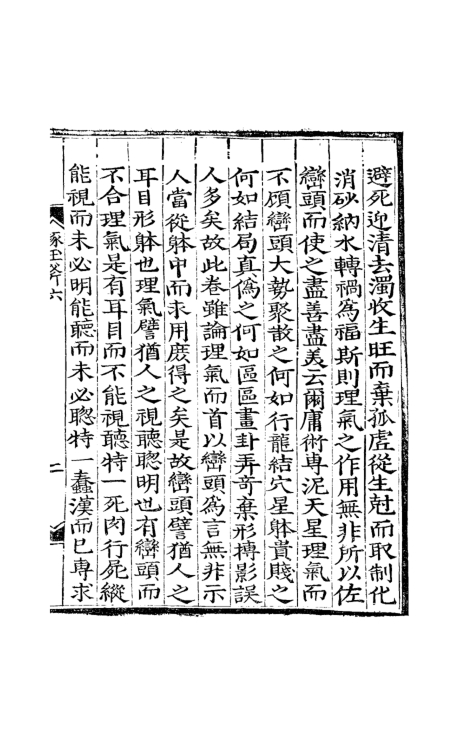 避死迎清去濁收生旺而棄孤虛從生尅而取制化
消砂納水轉禍為福斯則理氣之作用無非所以佐
巒頭而使之盡善盡美云爾庸術専泥天星理氣而
不頋巒頭大勢聚散之何如行龍結穴星躰貴賤之
何如結局真偽之何如區區畫卦弄奇棄形摶影誤
人多矣故此卷雖論理氣而首以巒頭為言無非示
人當從躰中而求用庻得之矣是故巒頭譬猶人之
耳目形躰也理氣譬猶人之視聽聰明也有巒頭而
不合理氣是有耳目而不能視聽特一死肉行屍縱
能視而未必明能聽而未必聰特一蠢漢而巳専求
琢玉斧六
二